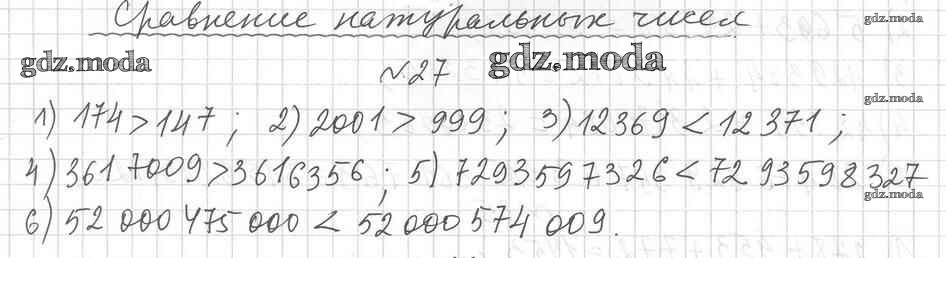 Сравнение натуральных чисел
gdz.moda
gdz.moda
№27
gdz.moda
gdz.moda
1) 174 > 147 ; 2) 2001 > 999 ; 3) 12369 < 12371 ;
4) 3617009 > 3616356 ; 5) 7293597326 < 7293598327
gdz.moda
6) 52 000 475 000 < 52 000 574 009.